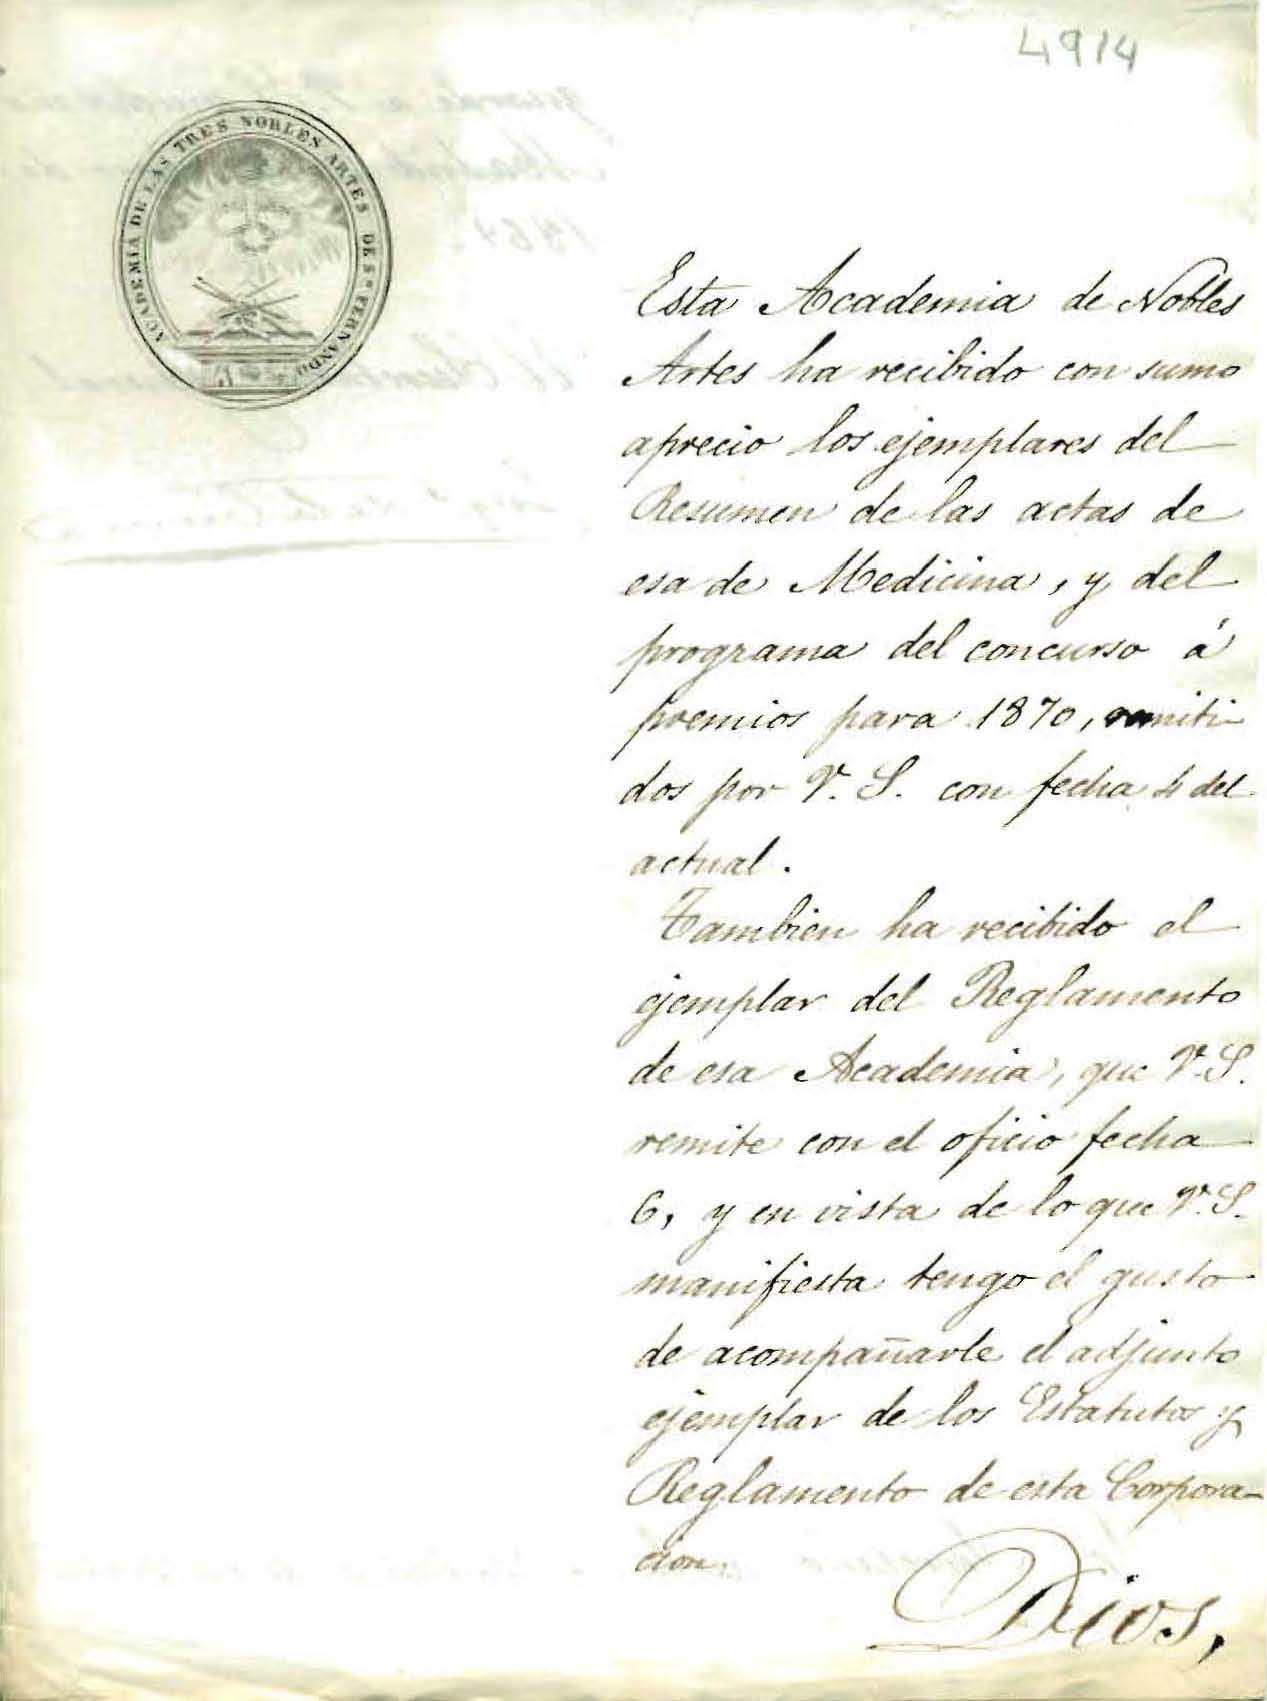 4914
ACADEMIA DE LAS TRES NOBLES ARTES DE Sn. FERNANDO
Esta Academia de Nobles
Artes ha recibido con sumo
aprecio los ejemplares del
Resumen de las actas de
esa de Medicina, y del
programa del concurso á
premios para 1870, remiti-
dos por V. S. con fecha 4 del
actual.
Tambien ha recibido el
ejemplar del Reglamento
de esa Academia, que V. S.
remite con el oficio fecha
6, y en vista de lo que V. S.
manifiesta tengo el gusto
de acompañarle el adjunto
ejemplar de los Estatutos y
Reglamento de esta Corpora-
cion.
Dios,